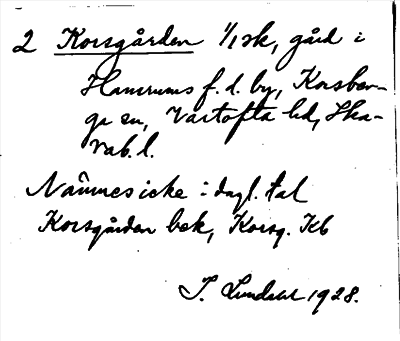 2 Korsgården 1/1 sk, gård i
Hamrums f. d. by, Korsber-
ga sn, Vartofta hd, Ska-
rab. l.
Nämnes icke i dagl. tal
Korsgården bek, Korsg. Kb
S. Lundahl 1928.